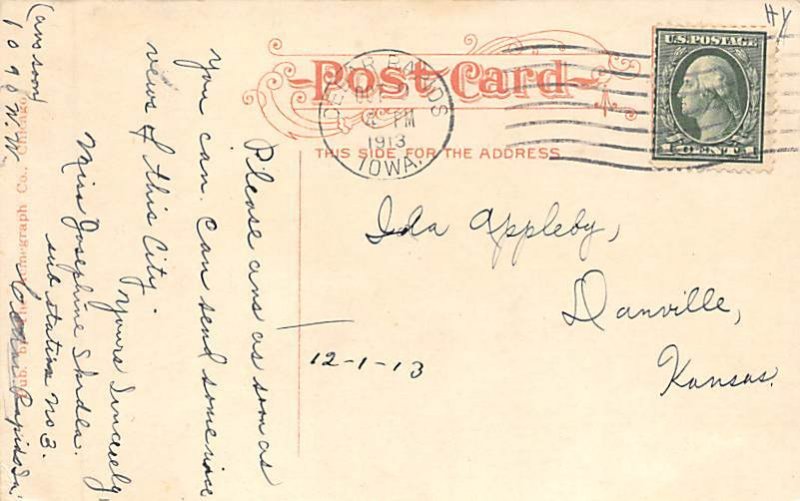 Post Card
THIS SIDE FOR THE ADDRESS
U.S. POSTAGE
1 CENT 1
CEDAR RAPIDS
OCT
PM
1913
IOWA.
Ida Appleby,
Danville,
Kansas.
12-1-13
Please ans as soon as
you can. Can send some nice
views of this City.
Yours Sincerely
Miss Josephine
sub station no 3.
Cedar Rapids Ia
(ans soon)
graph Co., Chicago